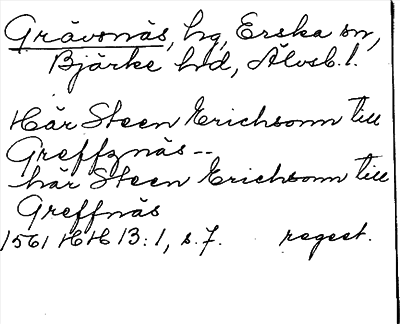 Grävsnäs, hg, Erska sn,
Bjärke hd, Älvsb. l.
Här Steen Erichsonn till
Greffznäs --
här Steen Erichsonn till
Greffnäs
1561 HH 13:1, s. 7. regest.